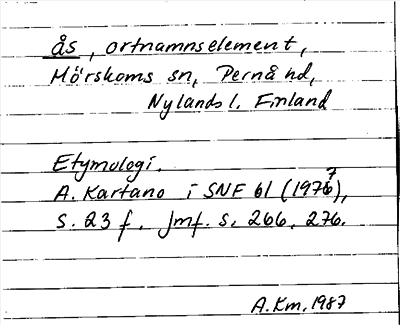 ås, ortnamnselement,
Mörskoms sn, Pernå hd,
Nylands l. Finland
Etymologi.
A. Kartano i SNF 61 (1977),
s. 23 f. Jmf. s. 266, 276.
A.Km, 1987